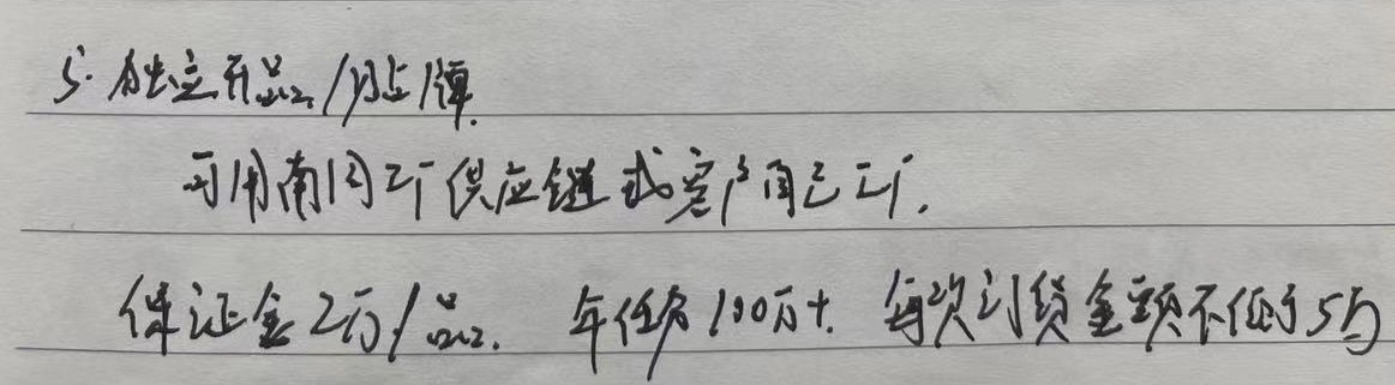 5. 独立开品/贴牌.
可用南周工厂供应链或客户自己工厂.
保证金2万/品. 年任务100万+. 每次订货金额不低于5万